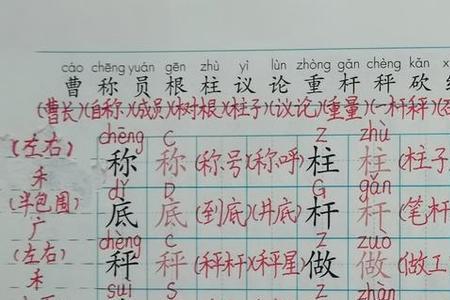 cáo chēng yuán gēn zhù yì lùn zhòng gǎn chèng kǎn
曹 称 员 根 柱 议 论 重 杆 秤 砍
(曹长)(自称)(成员)(树根)(柱子)(议论)(重量)(一杆秤)
chēng C Z zhù
(左右) 称 称 (称号)(称呼) 柱 柱 (柱子
禾 dǐ D G gǎn
(半包围) 底 底 (到底)(井底) 杆 杆 (笔杆
广 chèng C Z zuò
(左右) 秤 秤 (秤杆)(秤星) 做 做 (做工
禾 suì S Z zhàn